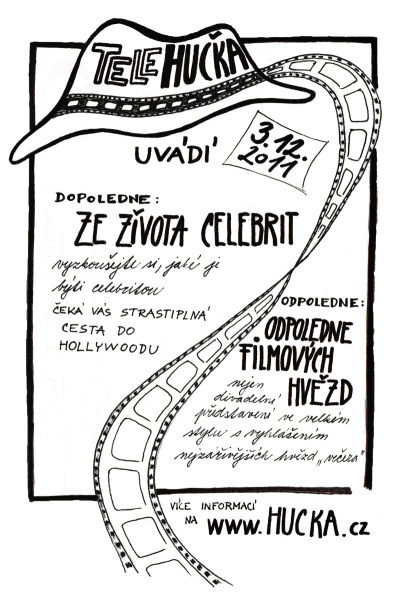 TELEHUČKA
UVÁDÍ
3.12.
2011
DOPOLEDNE:
ZE ŽIVOTA CELEBRIT
vyzkoušejte si, jaké je
býti celebritou
ČEKÁ VÁS STRASTIPLNÁ
CESTA DO
HOLLYWOODU
ODPOLEDNE:
ODPOLEDNE
FILMOVÝCH
HVĚZD
nejen
divadelní
představení ve velkém
stylu s vyhlášením
nejzářivějších hvězd „večera"
VÍCE INFORMACÍ
NA www.HUCKA.cz